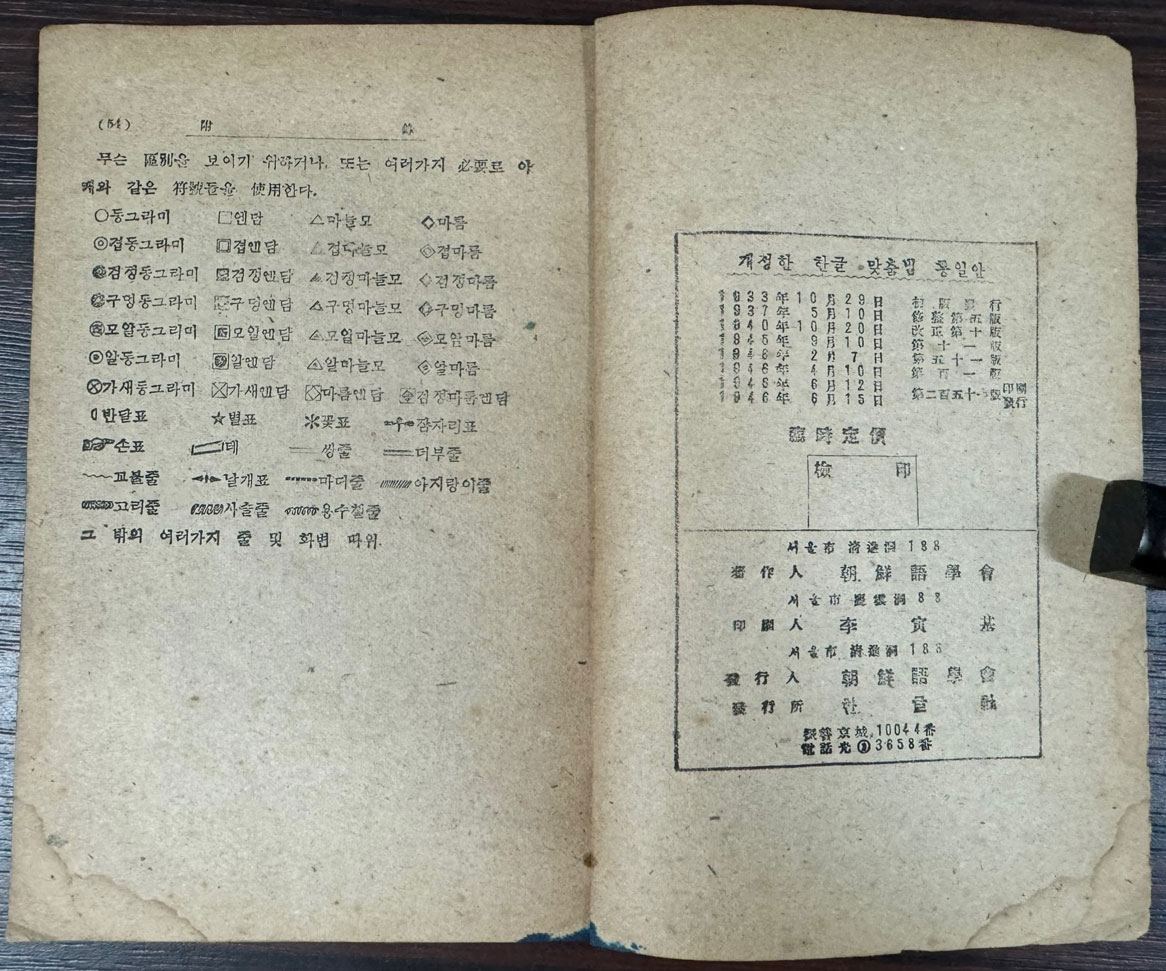 (54) 附 錄
무슨 區別을 보이기 위하거나, 또는 여러가지 必要로 아
래와 같은 符號들을 使用한다.
○동그라미 □엔담 △마늘모 ◇마름
◎겹동그라미 겹엔담 겹마늘모 겹마름
검정동그라미 검정엔담 검정마늘모 검정마름
구멍동그라미 구멍엔담 구멍마늘모 구멍마름
모알동그라미 모알엔담 모알마늘모 모알마름
알동그라미 알엔담 알마늘모 알마름
가새동그라미 가새엔담 마름엔담 검정마름엔담
반달표 ☆별표 꽃표 잠자리표
손표 테 쌍줄 더부줄
고불줄 날개표 마디줄 아지랑이줄
고리줄 사슬줄 용수철줄
그 밖의 여러가지 줄 및 화변 따위.
개정한 한글 맞춤법 통일안
1933年10月29日 初版發行
1937年 5月10日 修整第五版
1940年10月20日 改正第十版
1945年 9月10日 第十一版
1946年 2月 7日 第五十一版
1946年 4月10日 第百一版
1946年 6月12日 第二百五十一版印刷
1946年 6月15日 發行
臨時定價
檢印
서울市 淸進洞 188
著作人 朝鮮語學會
서울市 洞 88
印刷人 李寅基
서울市 淸進洞 188
發行人 朝鮮語學會
發行所
振替京城 10044番
電話光③3658番